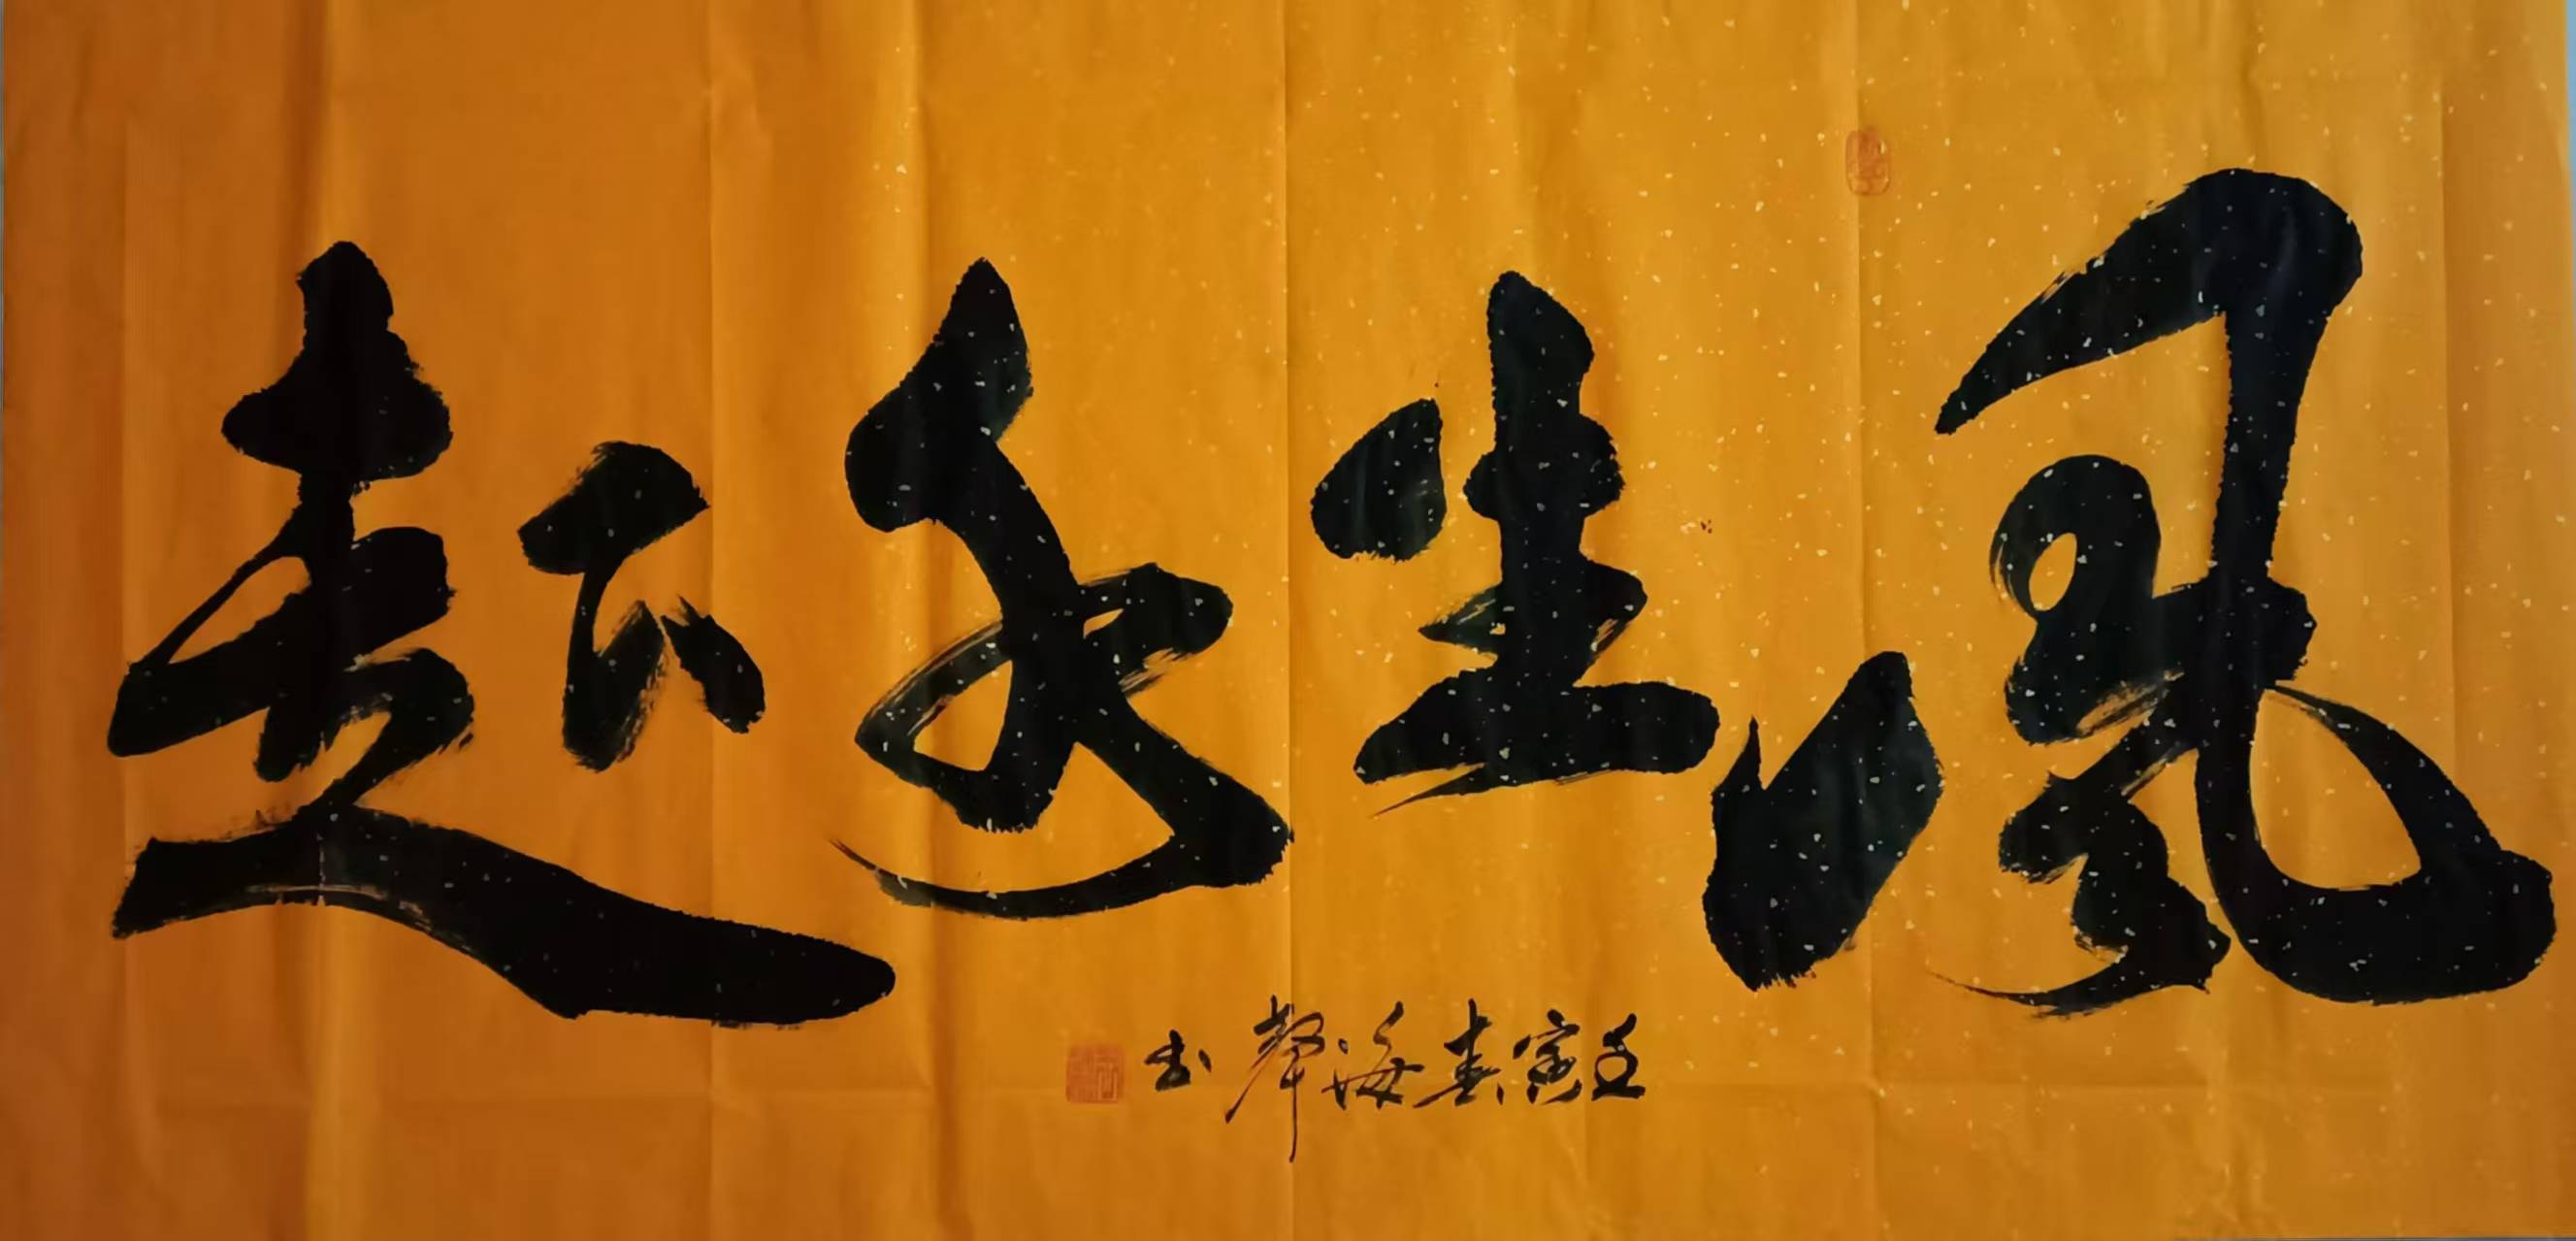 風生水起
壬寅春海聲书